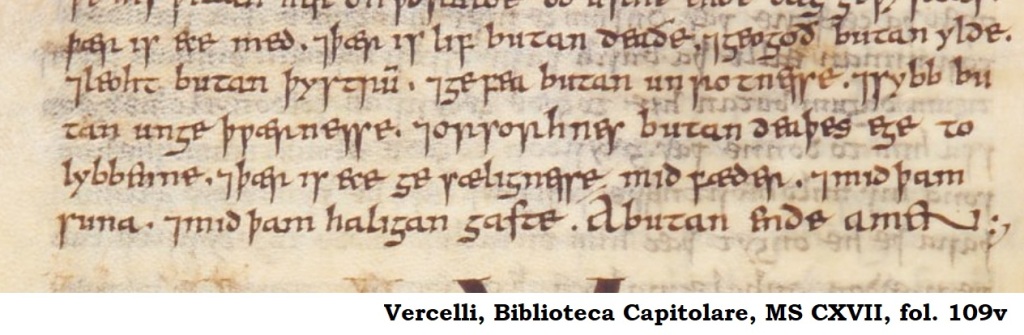 þær is ece med. ⁊þær is lif butan deaðe. ⁊geogoð butan ylde.
⁊leoht butan þystrū. ⁊gefea butan unrotnesse. ⁊sybb bu
tan ungeþwærnesse. ⁊orsorhnes butan deaþes ege to
lybbenne. ⁊þær is ece gesælignesse mid fæder. ⁊mid þam
suna. ⁊mid þam haligan gaste. A butan ende amen:,
Vercelli, Biblioteca Capitolare, MS CXVII, fol. 109v